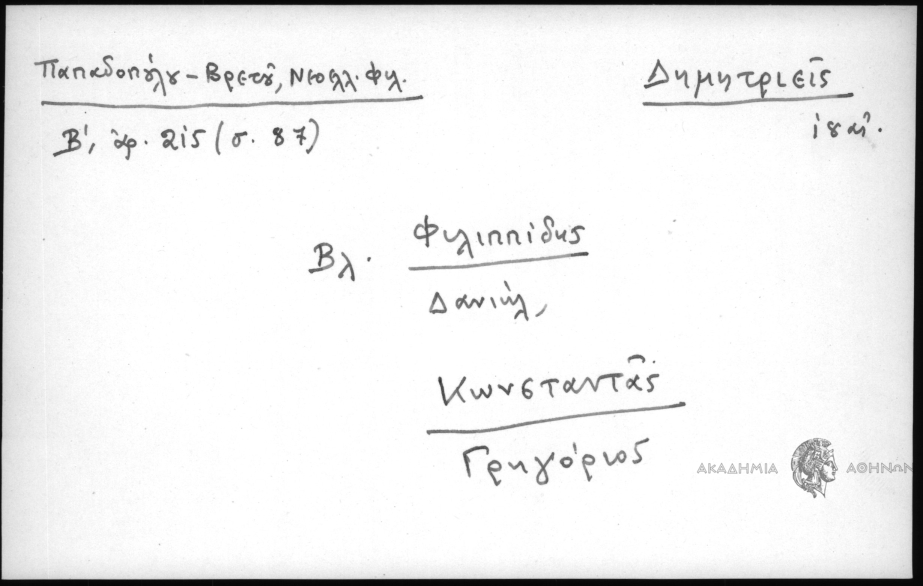 Παπαδοπούλου-Βρετοῦ, Νεοελλ. Φιλ.
Β', ἀρ. 215 (σ. 87)
Δημητριεῖς
Βλ. Φιλιππίδης
Δανιήλ,
Κωνσταντᾶς
Γρηγόριος
ΑΚΑΔΗΜΙΑ ΑΘΗΝΩΝ